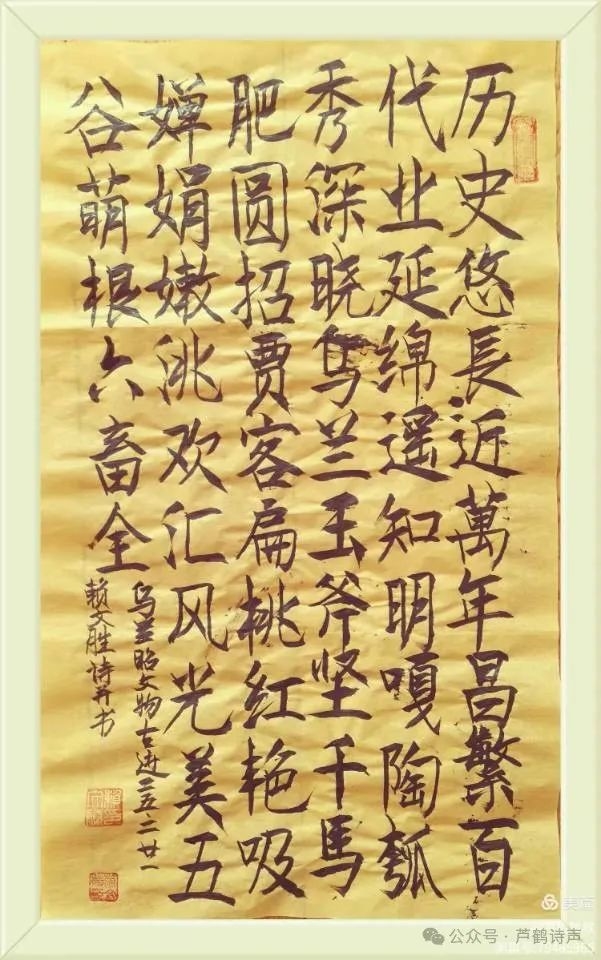 历史悠長近萬年昌繁百
代业延绵遥知明嘎陶瓠
秀深晓乌兰玉斧坚千馬
肥圆招贾客扁桃红艳吸
婵娟嫩洮欢汇风光美五
谷萌根六畜全
乌兰昭文物古迹二五二廿一
赖文胜诗并书
公众号·芦鹤诗声